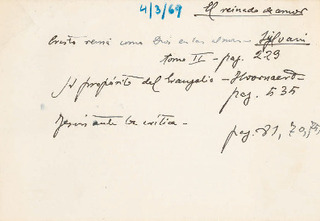 4/3/69 El reinado de amor
Cristo reina como Dios en las almas - Silvani
tomo II - pag. 229
A propósito del Evangelio - Hoornaert -
pag. 535
Jesús ante la crítica -
pag. 81, 70,